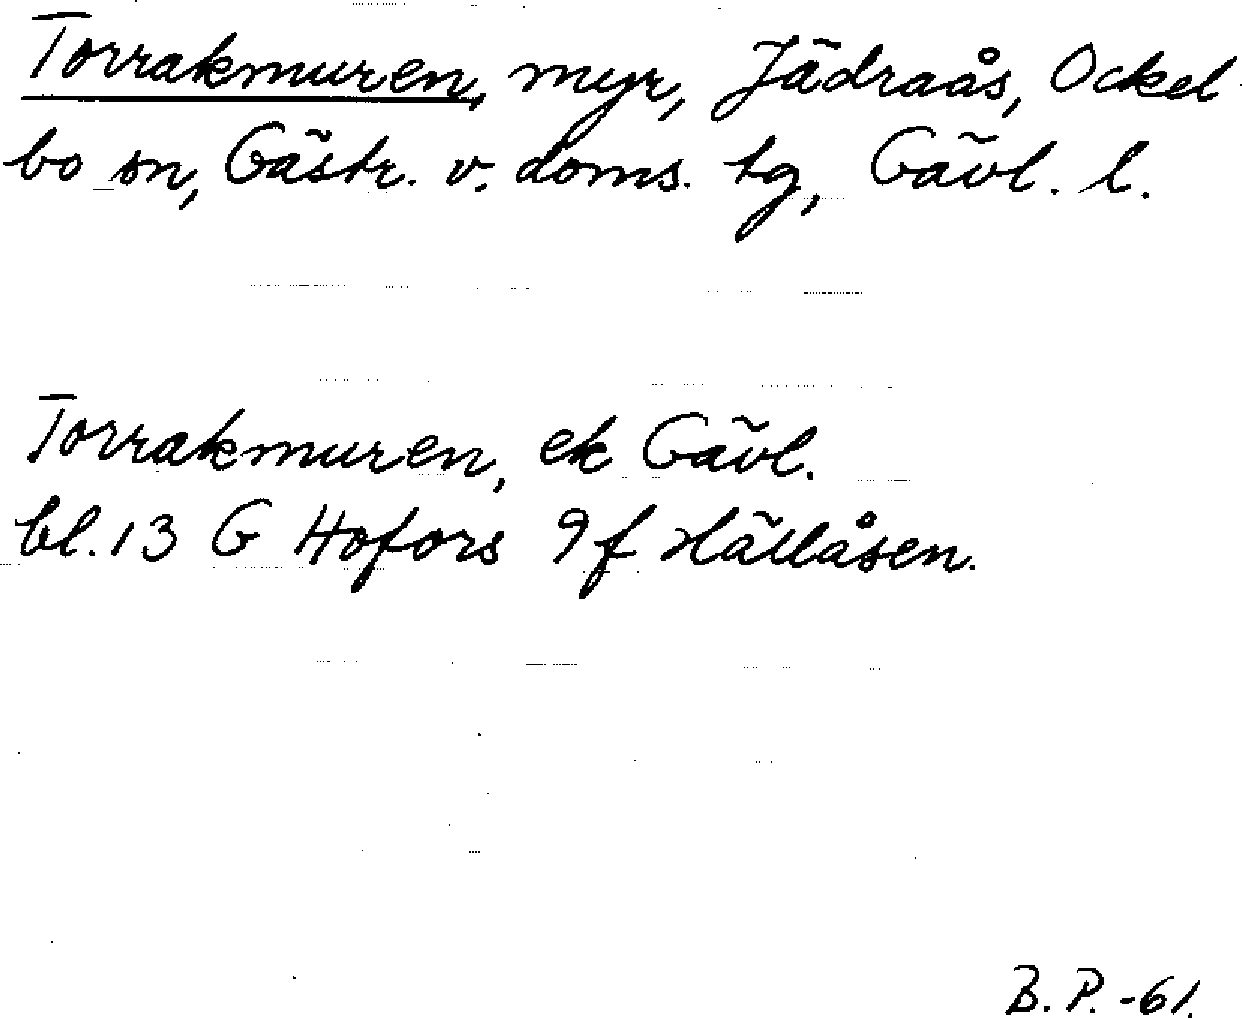 Torrakmuren, myr, Jädraås, Ockel-
bo sn, Gästr. v. doms. tg, Gävl. l.
Torrakmuren, ek Gävl.
bl. 13 G Hofors 9f Hällåsen.
B. P. -61.